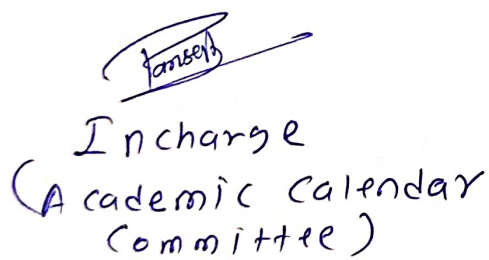 Incharge
(Academic Calendar
Committee)